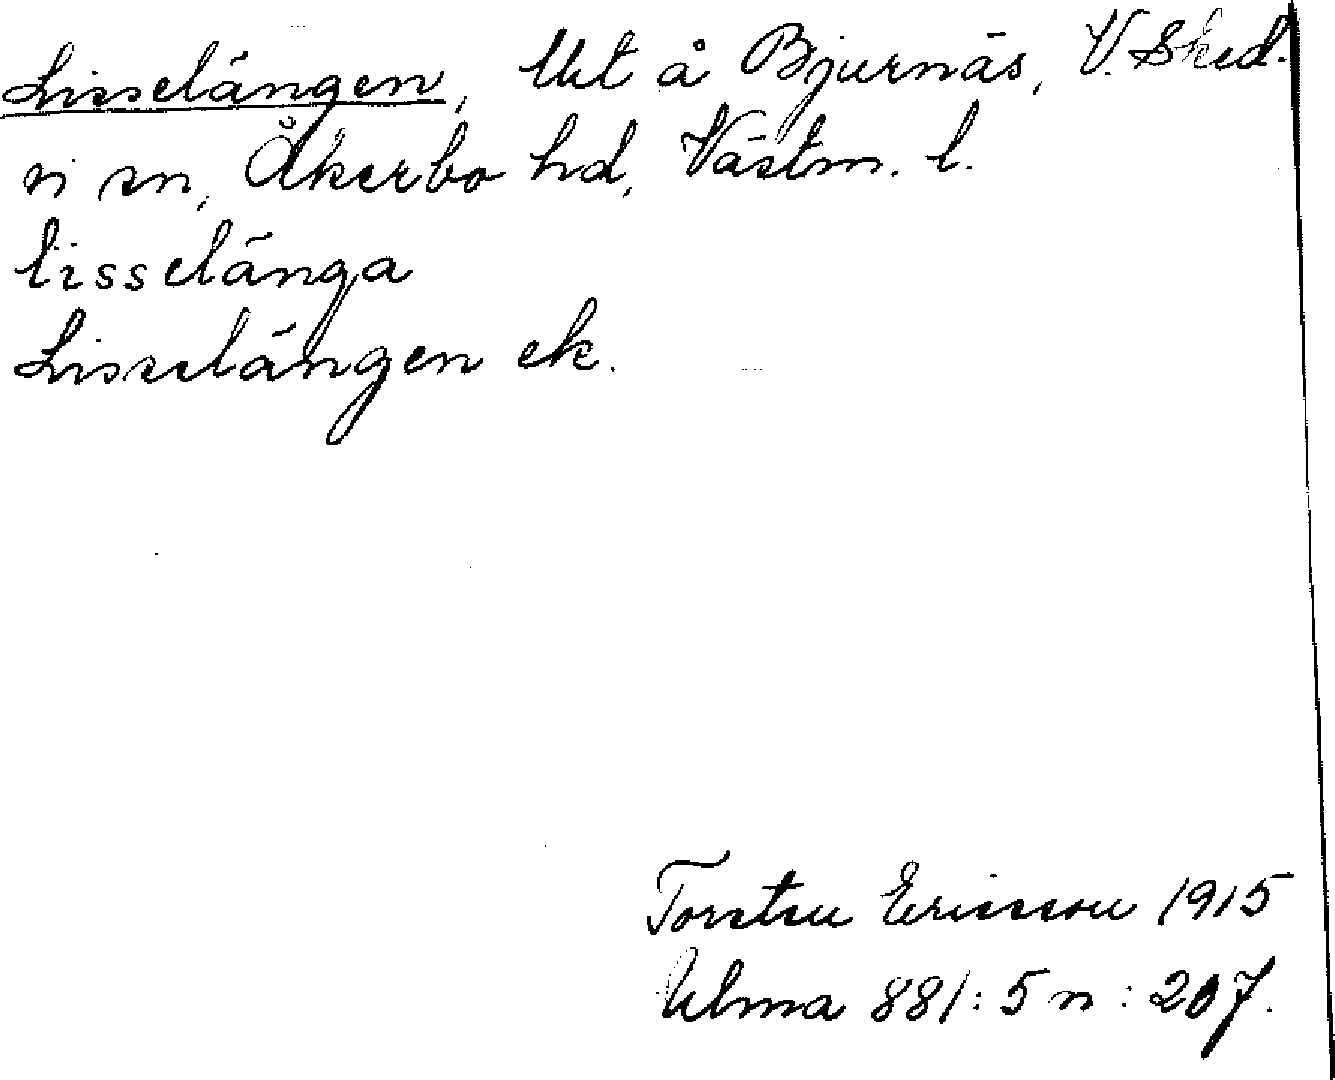 Lisselängen, Ut å Bjurnäs, V. Sked-
vi sn, Åkerbo hd, Västm. l.
lisselänga
Lisselängen ek.
Torsten Ericsson 1915
Ulma 881:5 n: 207.